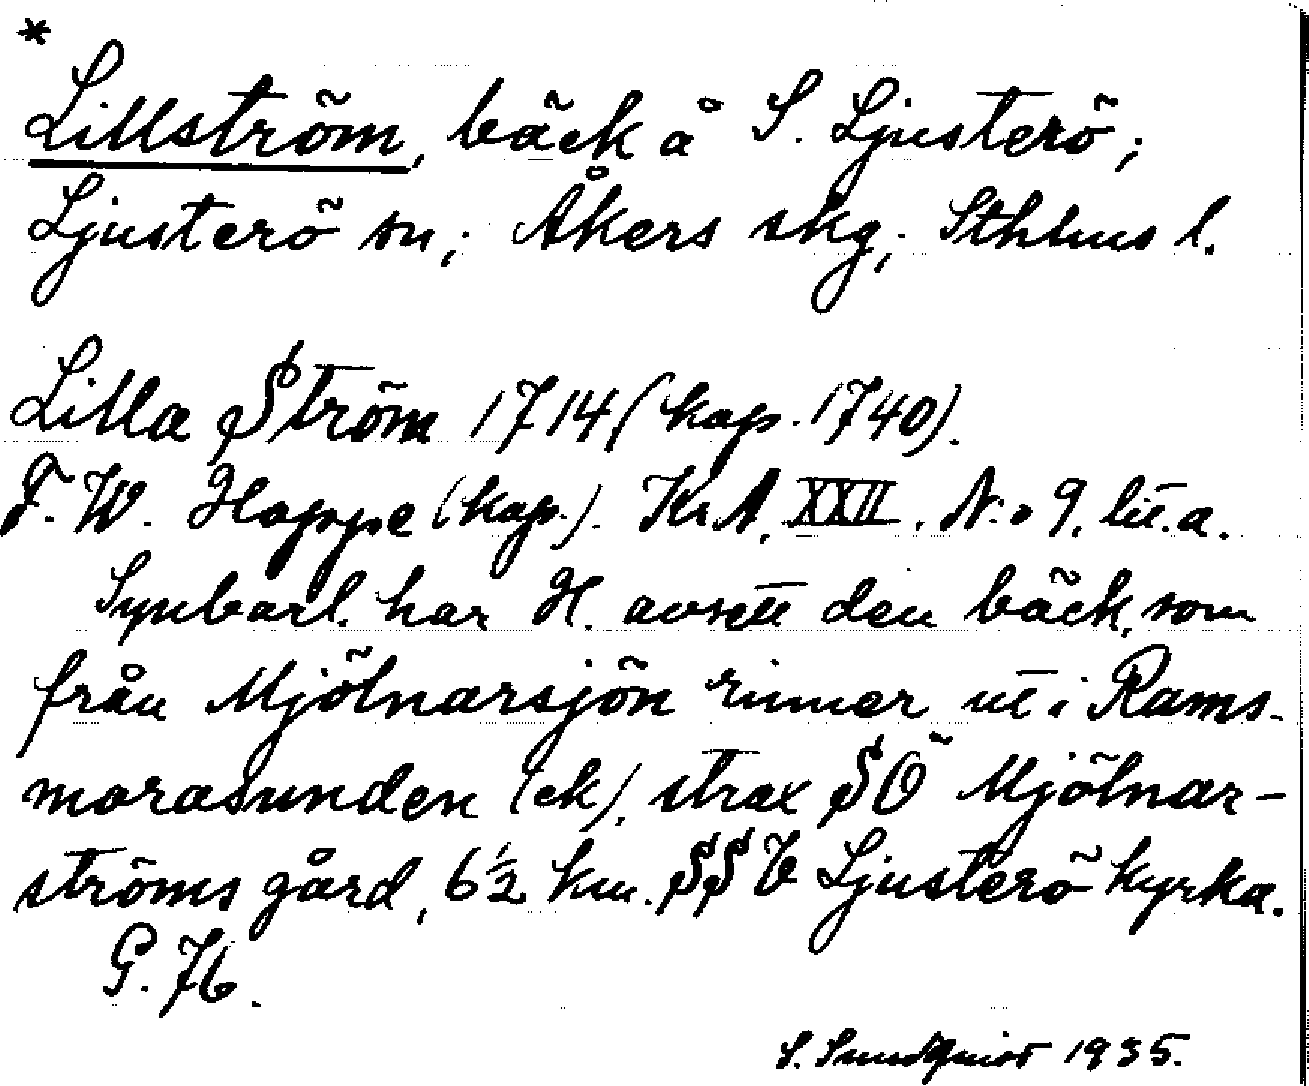 *
Lillström, bäck å S. Ljusterö;
Ljusterö sn; Åkers skg; Sthlms l.
Lilla Ström 1714 (kop. 1740).
F. W. Hoppe (kop.). Kr.A. XXII. N:o 9. lit. a.
Synbarl. har H. avsett den bäck, som
från Mjölnarsjön rinner ut i Rams-
morasunden (ek), strax SÖ Mjölnar-
ströms gård, 6½ km. SSV Ljusterö kyrka.
G. 76.
S. Sundquist 1935.